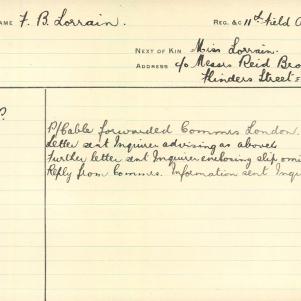 NAME F. B. Lorrain. REG. &C 11th Field A
NEXT OF KIN Miss Lorrain.
ADDRESS c/o Messrs Reid Bro
Flinders Street
P/Cable forwarded Commrs London.
Letter sent Inquirer advising as above.
Further letter sent Inquirer enclosing slip omi
Reply from Commrs. Information sent Inqu